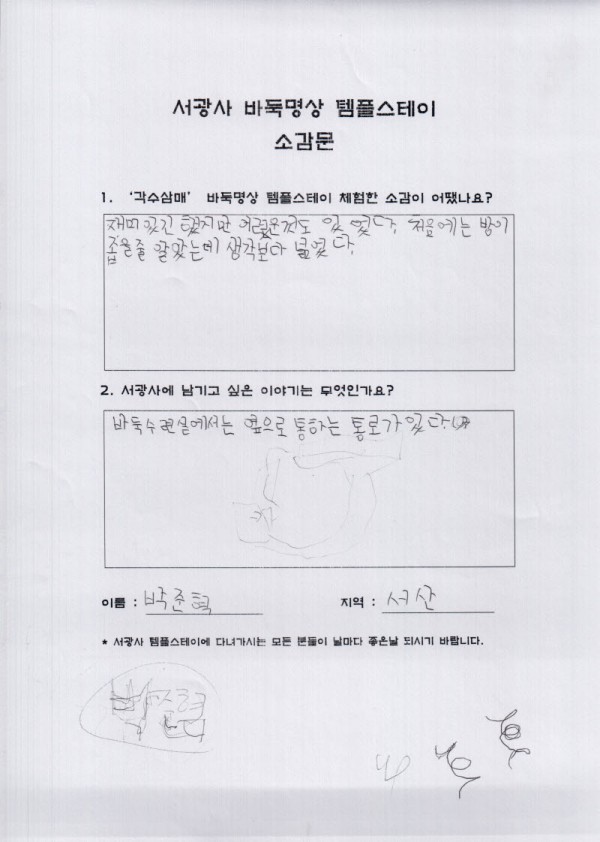 서광사 바둑명상 템플스테이
소감문
1. '각수삼매' 바둑명상 템플스테이 체험한 소감이 어땠나요?
재미있긴 했지만 어려운것도 있었다. 처음에는 방이
좁을줄 알았는데 생각보다 넓었다.
2. 서광사에 남기고 싶은 이야기는 무엇인가요?
바둑수련실에서는 옆으로 통하는 통로가있다.
이름 : 박준혁 지역 : 서산
* 서광사 템플스테이에 다녀가시는 모든 분들이 날마다 좋은날 되시기 바랍니다.